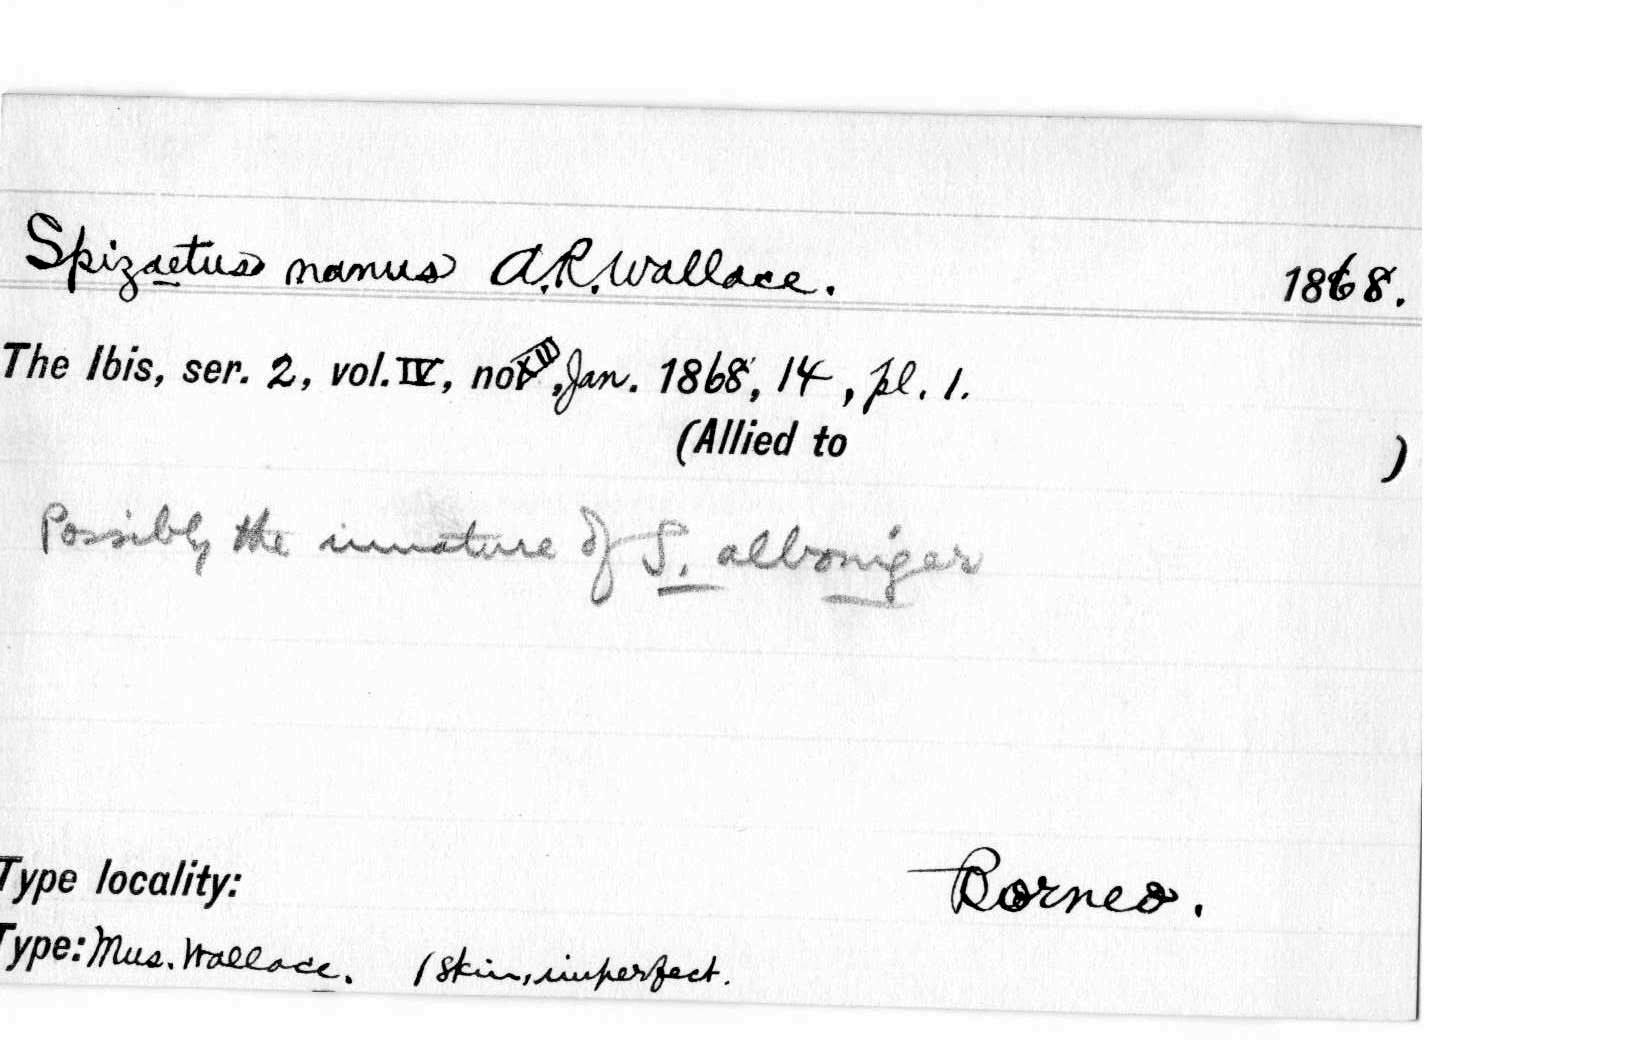 Spizaetus nanus A.R. Wallace. 1868.
The Ibis, ser. 2, vol. IV, no XIII, Jan. 1868, 14, pl. 1.
(Allied to )
Possibly the immature of S. alboniger
Type locality: Borneo.
Type: Mus. Wallace. 1 skin, imperfect.